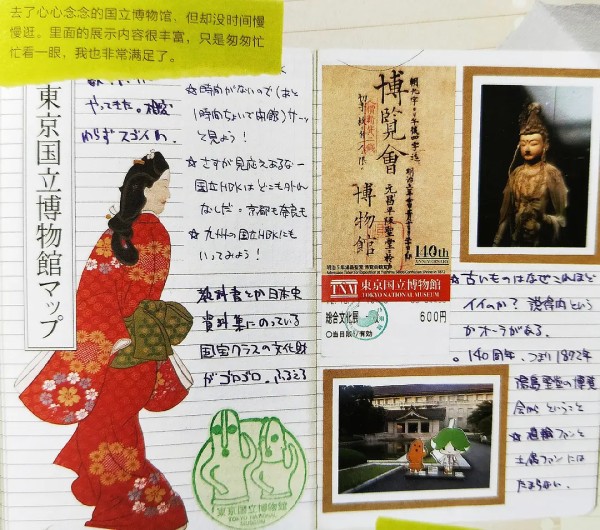 去了心心念念的国立博物馆，但却没时间慢
慢逛。里面的展示内容很丰富，只是匆匆忙
忙看一眼，我也非常满足了。
やってきた。相変
わらずスゴイわ。
東京国立博物館マップ
☆時間がないので（あと
1時間ちょいで閉館）サーッ
と見よう！
☆さすが見応えあるなー
国立HBKはどこもハズレ
なしだ：京都も奈良も
☆九州の国立HBKにも
いってみよう！
教科書とか日本史
資料集にのっている
国宝クラスの文化財
がゴロゴロ。ふるえる
東京国立博物館
TOKYO NATIONAL
MUSEUM
博覧會
博物館
元昌平坂聖堂ニ於テ
140th
ANNIVERSARY
TNM 東京国立博物館
TOKYO NATIONAL MUSEUM
総合文化展
600円
○当日限り有効
☆古いものはなぜこれほど
イイのか？説得力という
かオーラがある。
。140周年、つまり1872年
湯島聖堂の博覧
会が ということ
☆埴輪ファンと
土偶ファンには
たまらない。